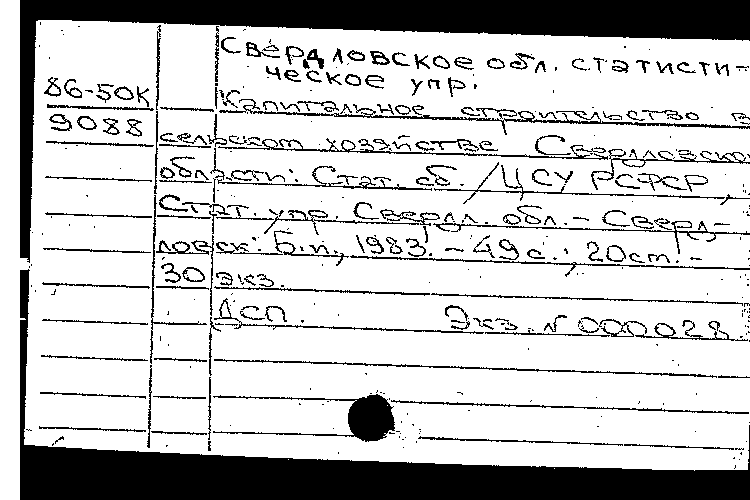 Свердловское обл. статисти-
ческое упр.
86-50К
Капитальное строительство в
9088
сельском хозяйстве Свердловско
области: Стат. сб. / ЦСУ РСФСР,
Стат. упр. Свердл. обл. - Сверд-
ловск: Б.и., 1983. - 49 с.; 20 см. -
30 экз.
ДСП. Экз. № 000028